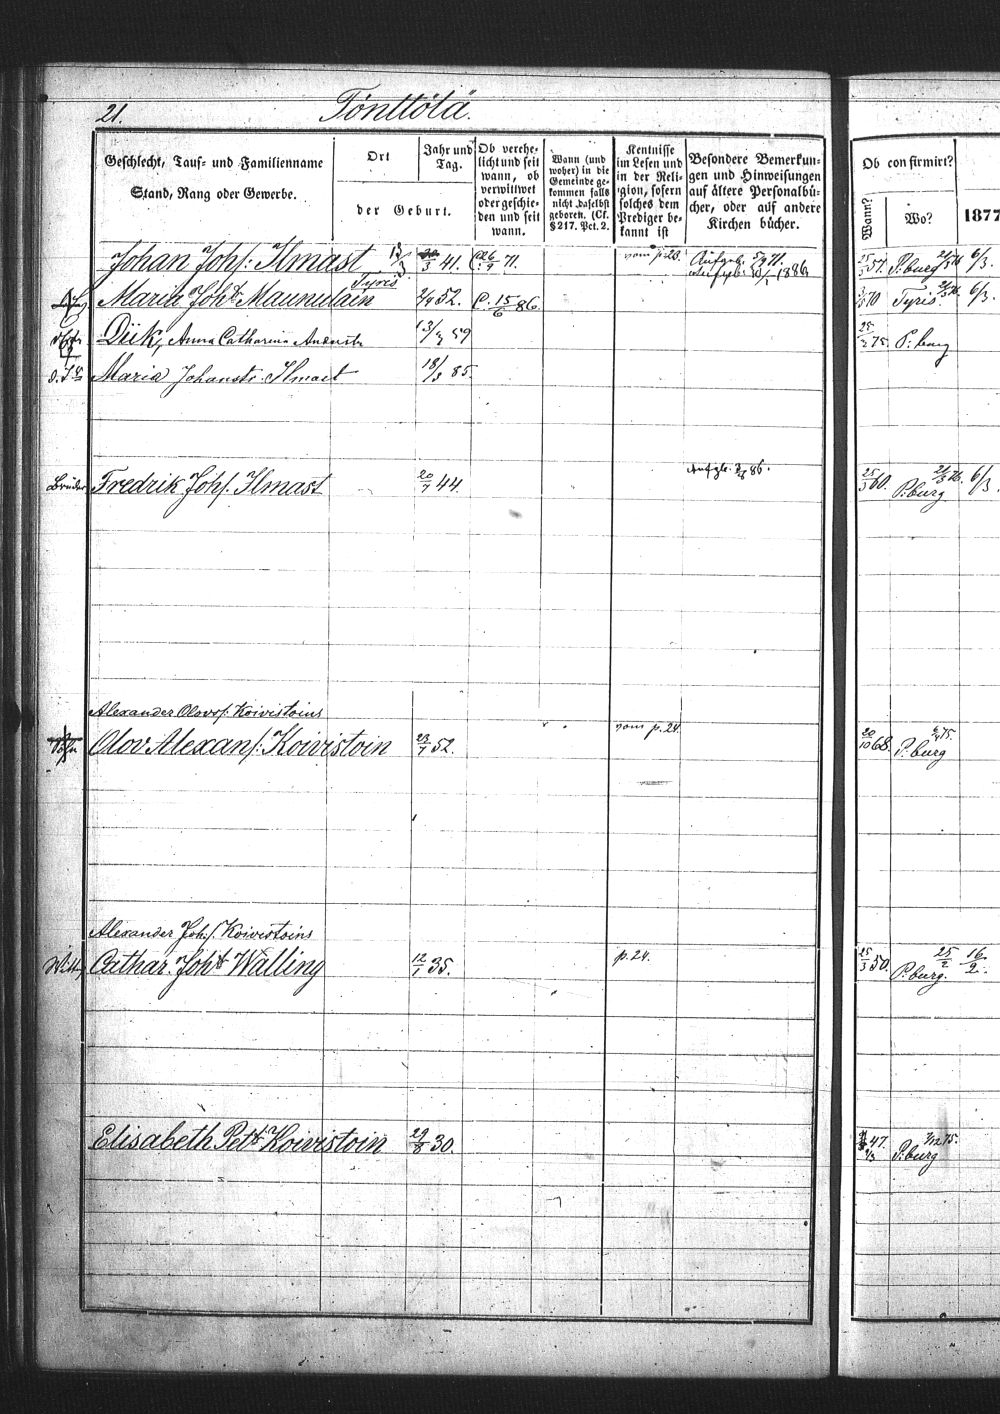 21. Tönttölä.
Geschlecht, Tauf- und Familienname
Stand, Rang oder Gewerbe.
Ort
der Geburt.
Jahr und
Tag.
Ob verehe-
licht und seit
wann, ob
verwittwet
oder geschie-
den und seit
wann.
Wann (und
woher) in die
Gemeinde ge-
kommen falls
nicht daselbst
geboren. (Cf.
§ 217. Pct. 2.
Kentnisse
im Lesen und
in der Reli-
gion, sofern
solches dem
Prediger be-
kannt ist
Besondere Bemerkun-
gen und Hinweisungen
auf ältere Personalbü-
cher, oder auf andere
Kirchen bücher.
Ob confirmirt?
Wann?
Wo?
1877
Johan Johs: Ilmast 41. 26/9 71. vom p. 23. Aufgeb. 5/9 71. 1886 25/3 57. P:burg 6/3.
Tyris
Maria Joht Maunulain 2/9 52. C. 15/6 86. 70 Tyris 6/3.
Anna Catharina 13/3 59 25/2 75. P:burg
Maria Johanstr. Ilmast 18/3 85.
Bruder Fredrik Johs. Ilmast 20/7 44. Aufgb. 86. 25/3 60. P:burg 6/3.
Alexander Olovs: Koivistoins
Sohn Olov Alexans: Koivistoin 23/7 52. vom p. 24. 20/10 68. P:burg
Alexander Johs. Koivistoins
Cathar. Joht Walling 12/1 35. p. 24. 25/3 50. P:burg. 25/2 16/2.
Elisabeth Pett Koivistoin 29/8 30. 47. P:burg